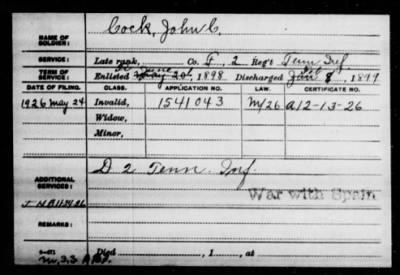 NAME OF SOLDIER: Cock, John C.
SERVICE: Late rank, Co. F, 2 Reg't Tenn Inf.
TERM OF SERVICE: Enlisted May 20, 1898 Discharged Jan 8, 1899
DATE OF FILING. CLASS. APPLICATION NO. LAW. CERTIFICATE NO.
1926 May 24 Invalid, 1541043 M/26 A12-13-26
Widow,
Minor,
ADDITIONAL SERVICES: D 2 Tenn. Inf.
War with Spain
REMARKS:
Died , 1 , at